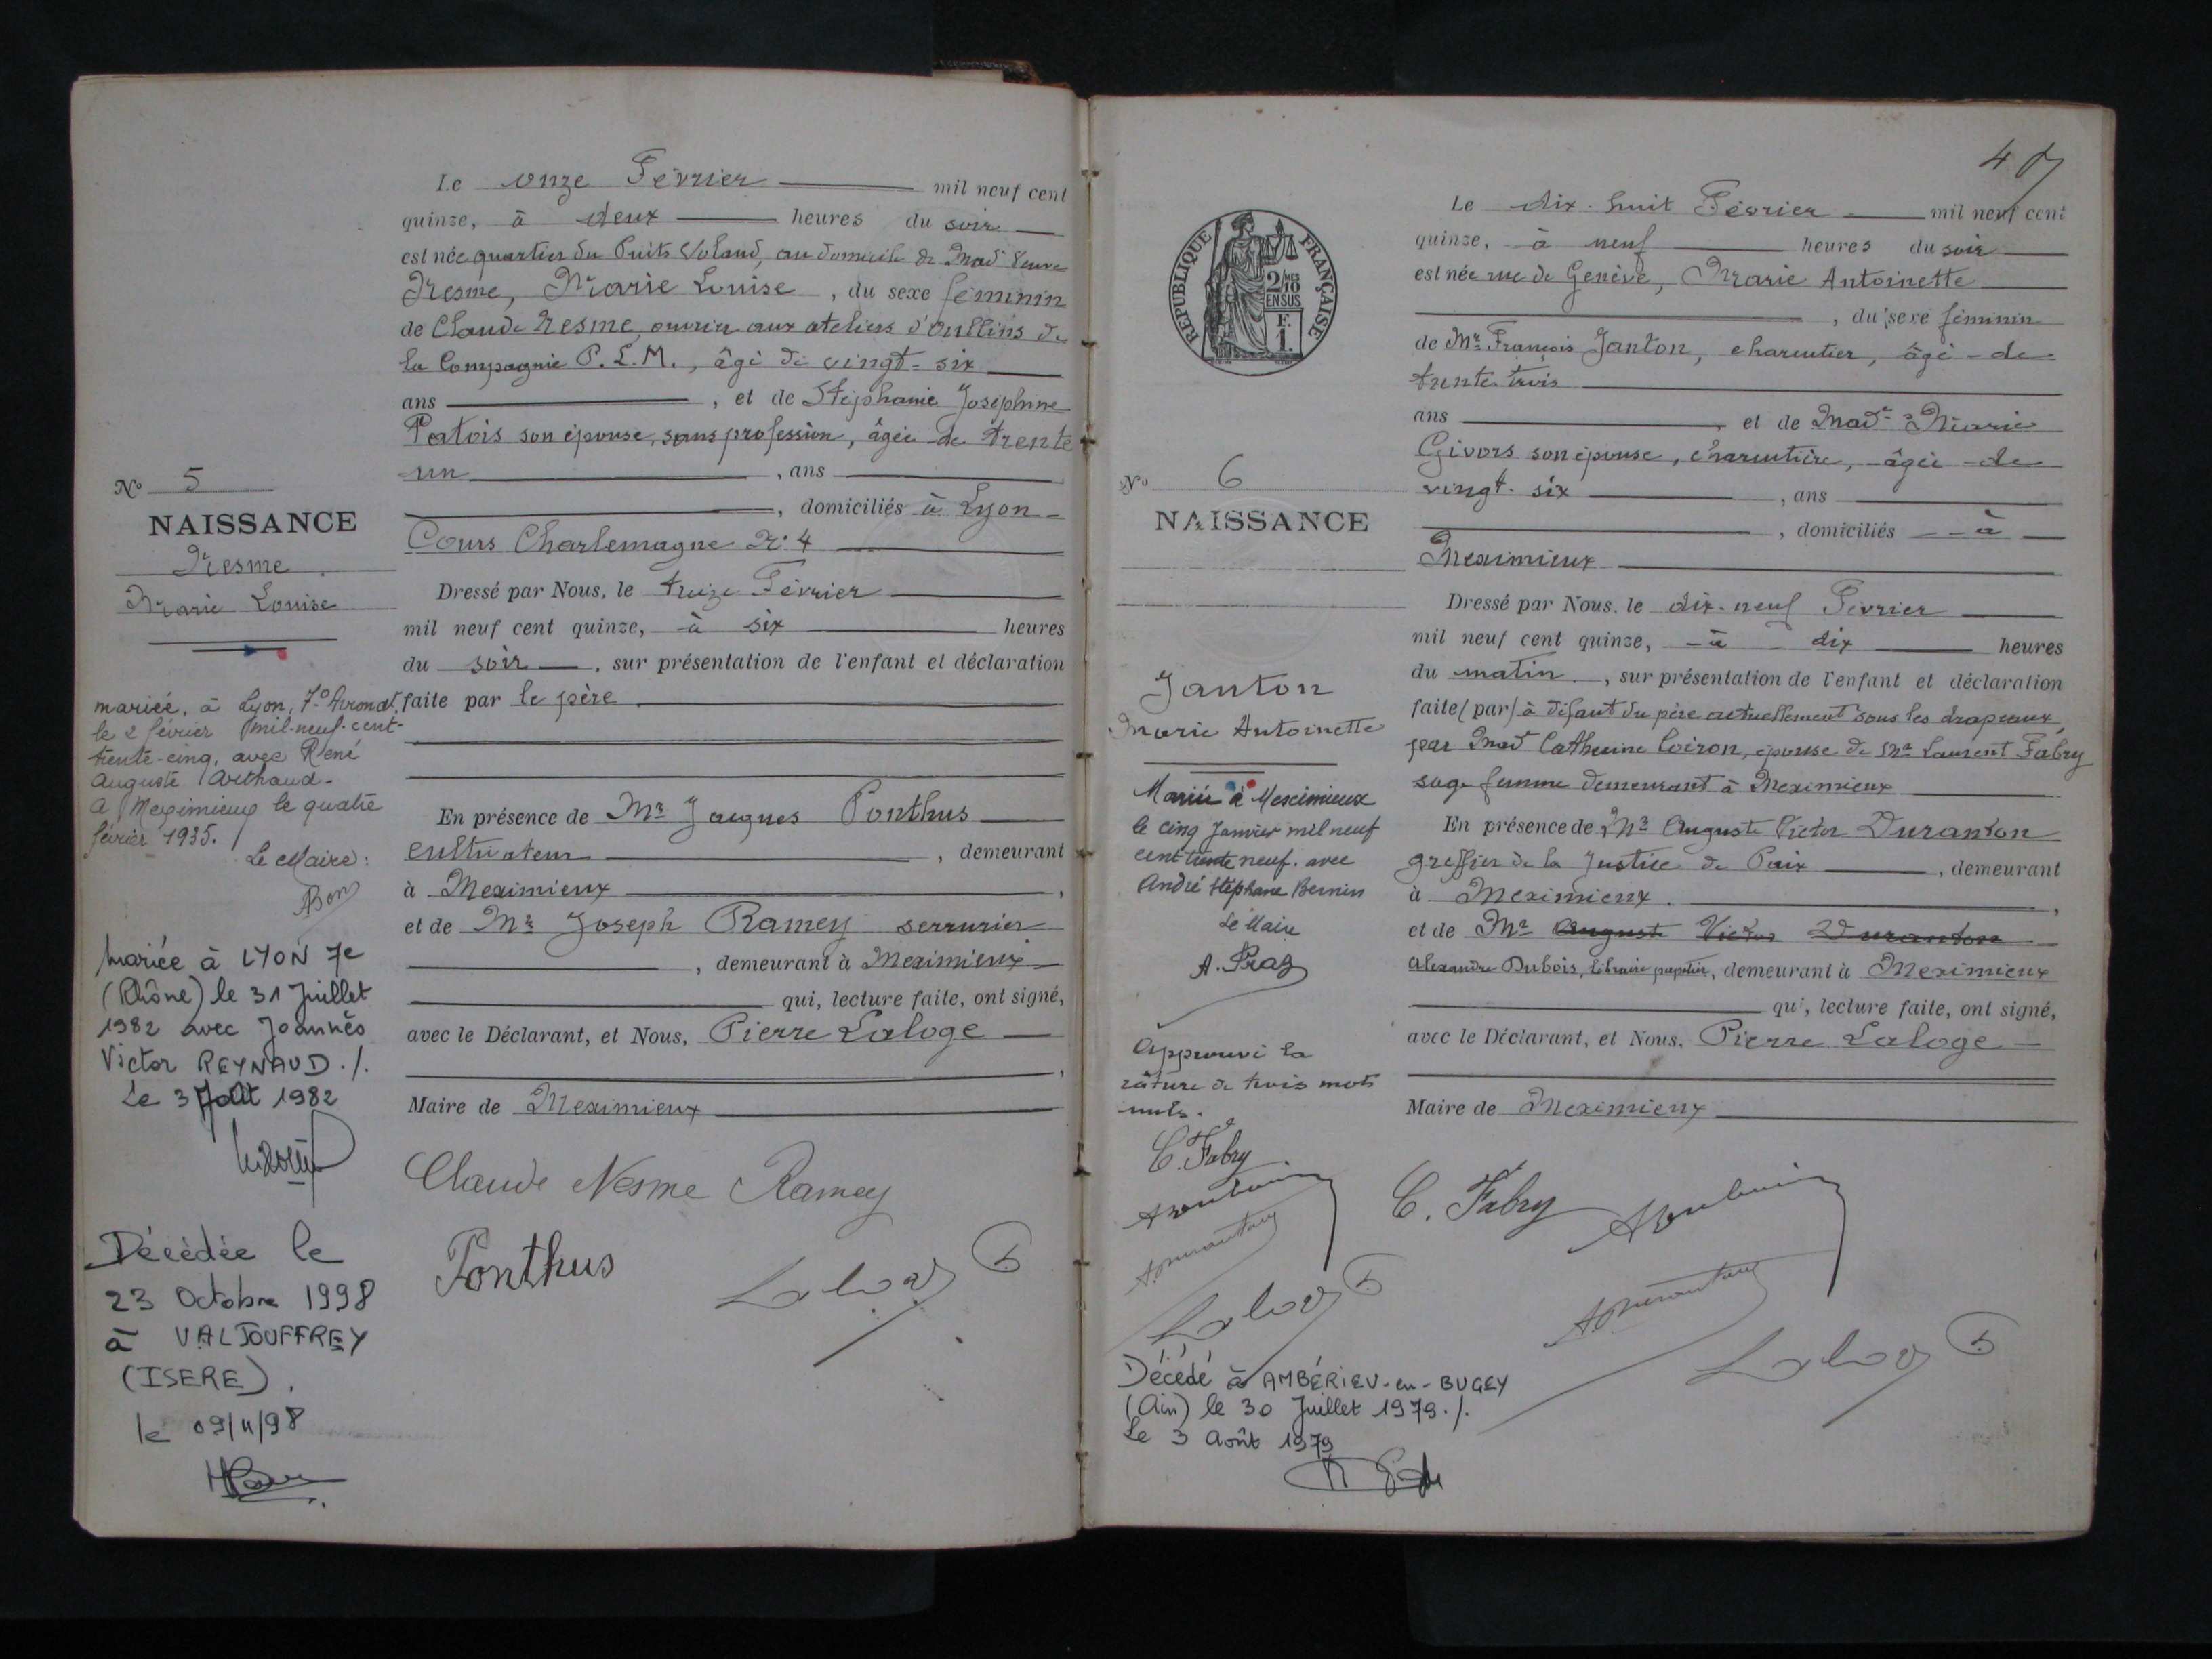 Le onze Février mil neuf cent
quinze, à deux heures du soir
est née quartier du Puits Voland, au domicile de Mad Veuve
Nesme, Marie Louise, du sexe féminin
de Claude Nesme, ouvrier aux ateliers d'Oullins de
la Compagnie P.L.M., âgé de vingt-six
ans, et de Stéphanie Joséphine
Patois son épouse, sans profession, âgée de trente
un, ans
, domiciliés à Lyon
Cours Charlemagne N° 4
Dressé par Nous, le treize Février
mil neuf cent quinze, à six heures
du soir, sur présentation de l'enfant et déclaration
faite par le père
En présence de Mr Jacques Ponthus
cultivateur, demeurant
à Meximieux,
et de Mr Joseph Ramey serrurier
, demeurant à Meximieux
qui, lecture faite, ont signé,
avec le Déclarant, et Nous, Pierre Laloge
,
Maire de Meximieux
Claude Nesme Ramey
Ponthus
N° 5
NAISSANCE
Nesme
Marie Louise
mariée, à Lyon, 7e Arrondt,
le 2 février mil-neuf-cent-
trente-cinq, avec René
Auguste Arthaud.
A Meximieux le quatre
février 1935.
Le Maire:
mariée à LYON 7e
(Rhône) le 31 Juillet
1982 avec Joannès
Victor REYNAUD./.
Le 3 Août 1982
Décédée le
23 Octobre 1998
à VALJOUFFREY
(ISERE).
le 09/11/98
4
RÉPUBLIQUE FRANÇAISE
2/10 MES
EN SUS
F.
1.
Le dix-huit Février mil neuf cent
quinze, à neuf heures du soir
est née rue de Genève, Marie Antoinette
, du sexe féminin
de Mr François Janton, charcutier, âgé de
trente-trois
ans, et de Made Marie
Givors son épouse, charcutière, âgée de
vingt-six, ans
, domiciliés à
Meximieux
Dressé par Nous, le dix-neuf Février
mil neuf cent quinze, à dix heures
du matin, sur présentation de l'enfant et déclaration
faite (par) à défaut du père actuellement sous les drapeaux,
par Mad Catherine Coiron, épouse de Mr Laurent Fabry
sage femme demeurant à Meximieux
En présence de Mr Auguste Victor Duranton
greffier de la Justice de Paix, demeurant
à Meximieux.,
et de Mr Auguste Victor Duranton
Alexandre Dubois, libraire papetier, demeurant à Meximieux
qui, lecture faite, ont signé,
avec le Déclarant, et Nous, Pierre Laloge
Maire de Meximieux
C. Fabry
No 6
NAISSANCE
Janton
Marie Antoinette
Mariée à Meximieux
le cinq Janvier mil neuf
cent trente neuf. avec
André Stéphane Bernin
Le Maire
A. Praz
Approuvé la
râture de trois mots
nuls.
C. Fabry
Décédé à AMBÉRIEU-en-BUGEY
(Ain) le 30 Juillet 1979./.
Le 3 Août 1979